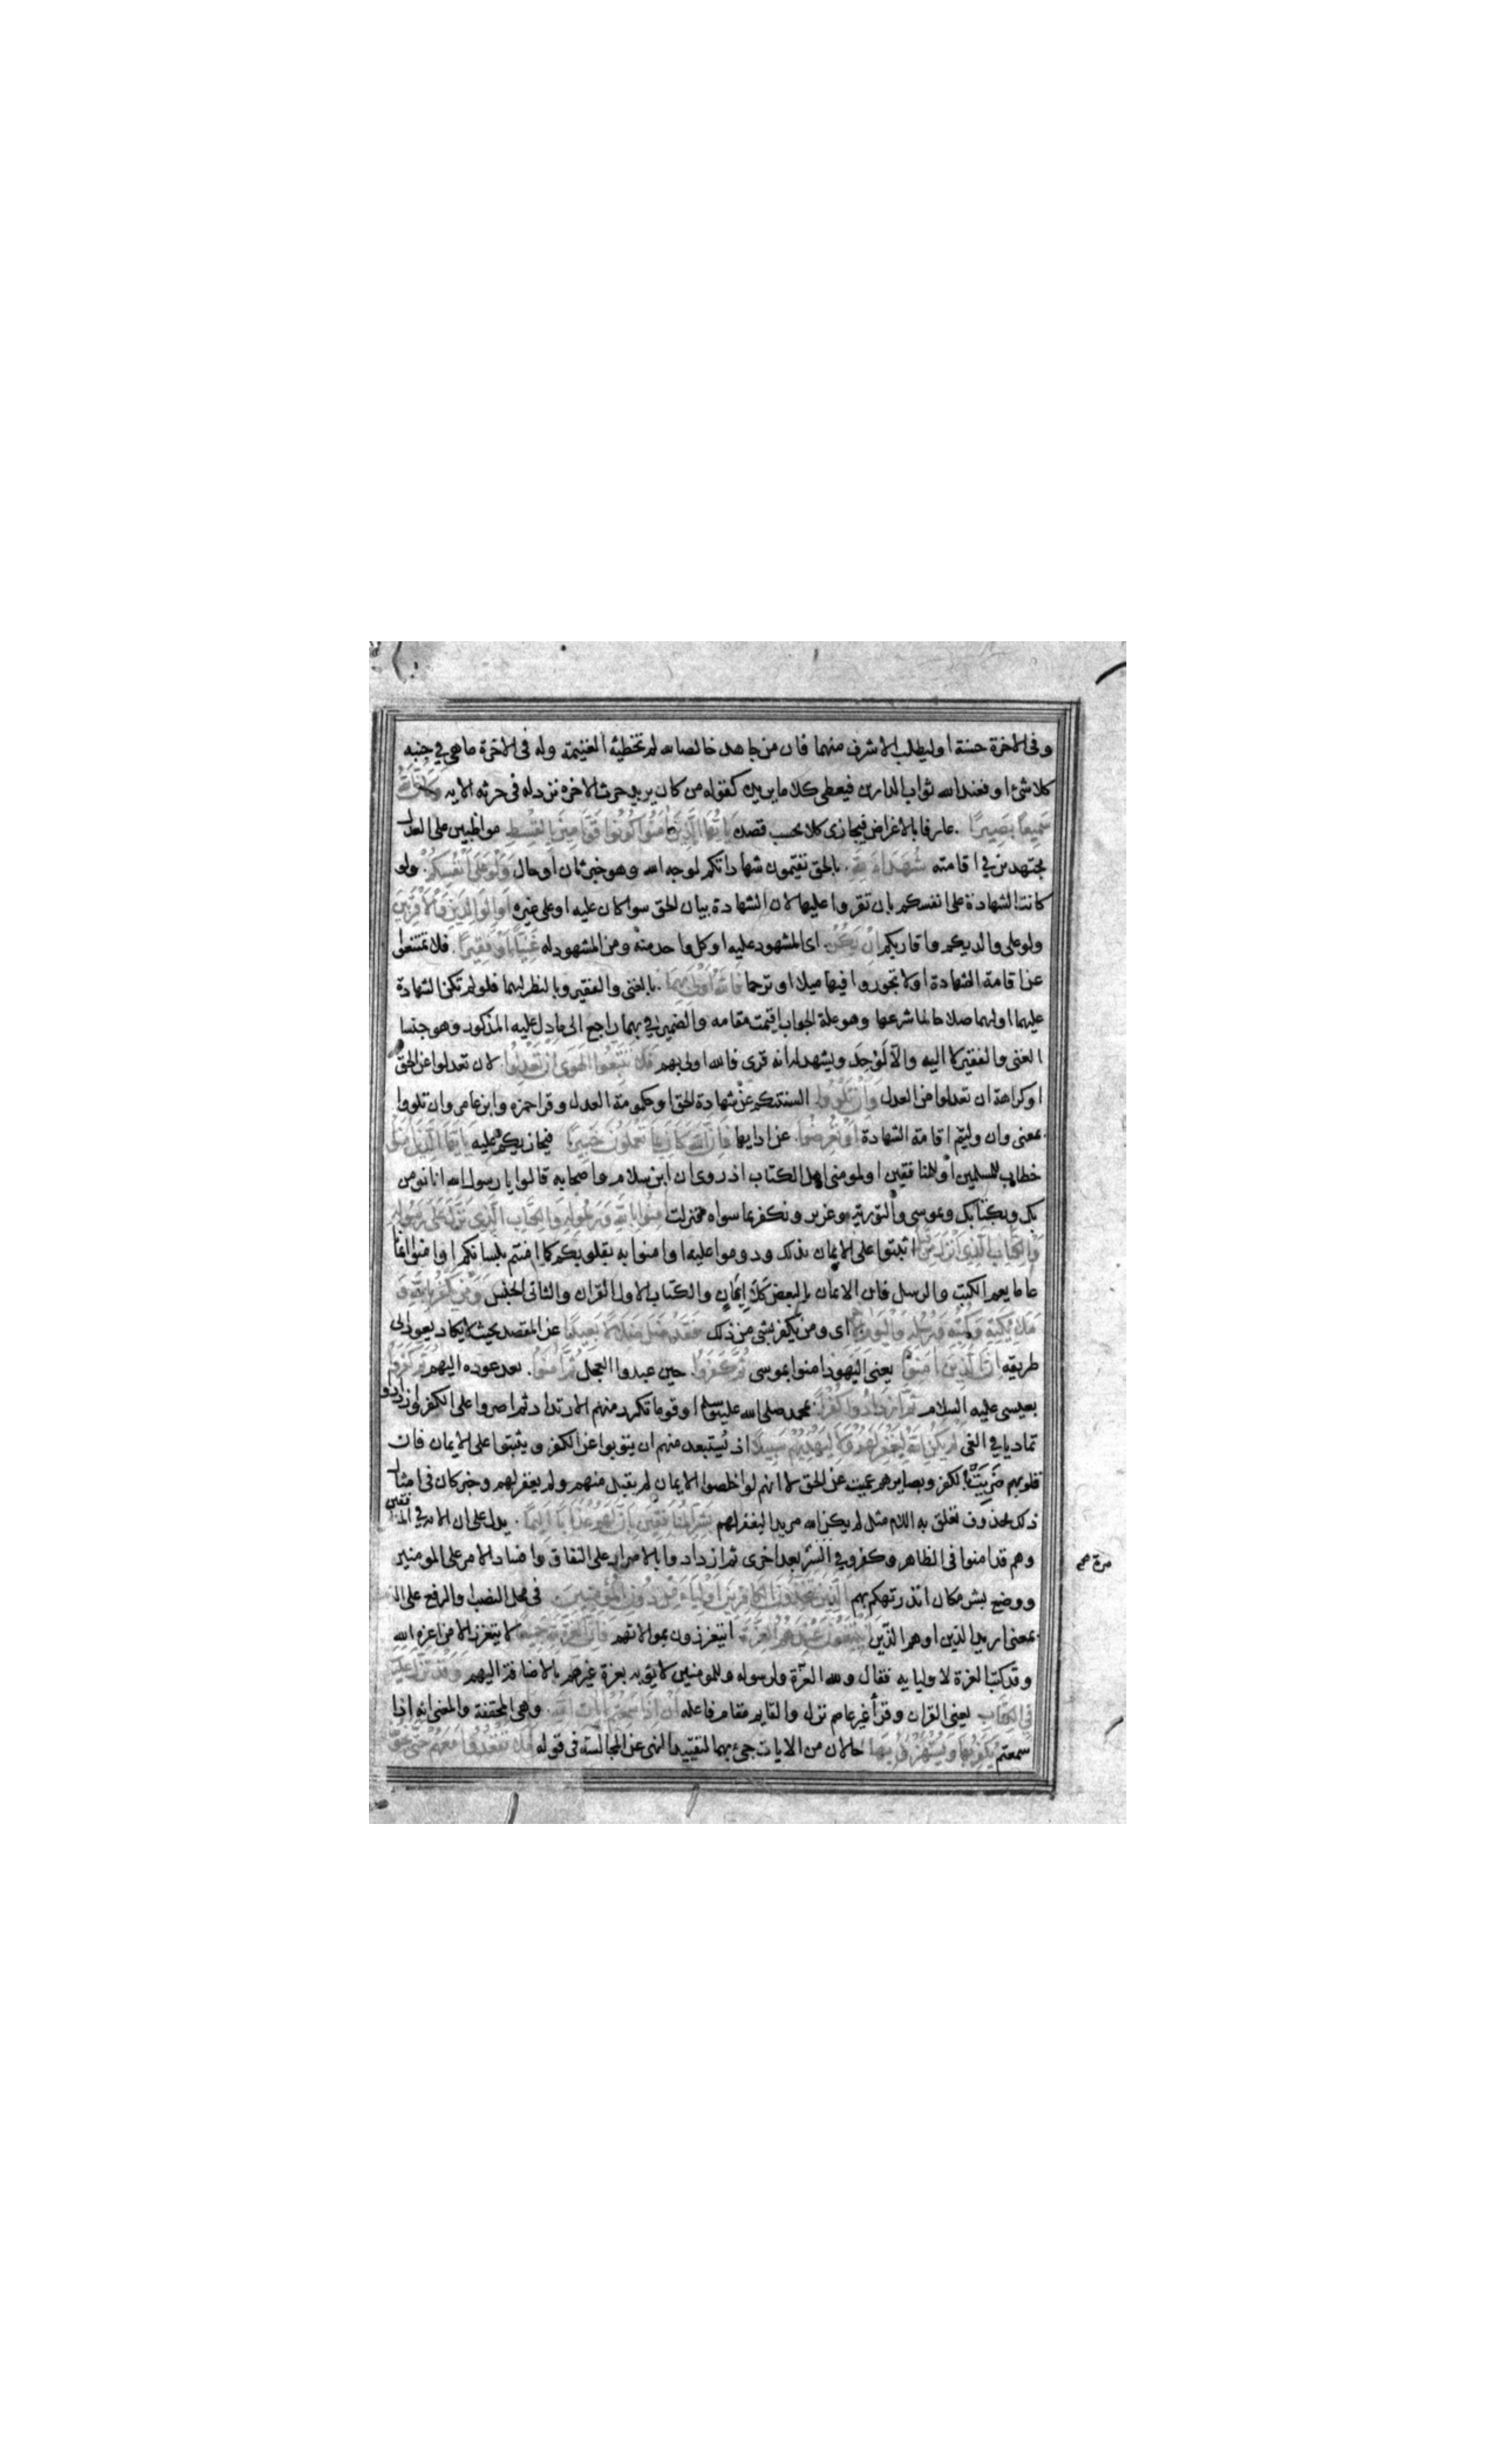 وفى الاخرة حسنة او ليطلب الاشرف منهما فان من جاهد خالصا لله لم تخطيه الغنيمة وله فى الاخرة ما هى فى جنبه
كلا شئ او فعند الله ثواب الدارين فيعطى كلا ما يريده كقوله من كان يريد حرث الاخرة نزد له فى حرثه الايه وَكَانَ اللهُ
سَمِيعًا بَصِيرًا عارفا بالاغراض فيجازى كلا بحسب قصده يَا اَيُّهَا الَّذِينَ اٰمَنُوا كُونُوا قَوَّامِينَ بِالْقِسْطِ مواظبين على العدل
مجتهدين فى اقامته شُهَدَاءَ لِلّٰهِ بالحق تقيمون شهاداتكم لوجه الله وهو خبر ثان او حال وَلَوْ عَلَى اَنْفُسِكُمْ ولو
كانت الشهادة على انفسكم بان تقروا عليها لان الشهادة بيان الحق سوا كان عليه او على غيره اَوِ الْوَالِدَيْنِ وَالْاَقْرَبِينَ
ولو على والديكم واقاربكم اِنْ يَكُنْ اى المشهود عليه او كل واحد منه ومن المشهود له غَنِيًّا اَوْ فَقِيرًا فلا تمتنعوا
عن اقامة الشهادة او لا تجوروا فيها ميلا او ترحما فَاللهُ اَوْلٰى بِهِمَا بالغنى والفقير وبالنظر لهما فلو لم تكن الشهادة
عليهما او لهما صلاحا لما شرعها وهو علة الجواب اقيمت مقامه والضمير فى بهما راجع الى ما دل عليه المذكور وهو جنسا
الغنى والفقير لا اليه والا لوحد ويشهد له انه قرى فالله اولى بهم فَلَا تَتَّبِعُوا الْهَوٰى اَنْ تَعْدِلُوا لان تعدلوا عن الحق
او كراهة ان تعدلوا من العدل وَاِنْ تَلْوُوا السنتكم عن شهادة الحق او حكومة العدل وقرا حمزه وابن عامر وان تلوا
بمعنى وان وليتم اقامة الشهادة اَوْ تُعْرِضُوا عن ادايها فَاِنَّ اللهَ كَانَ بِمَا تَعْمَلُونَ خَبِيرًا فيجازيكم عليه يَا اَيُّهَا الَّذِينَ اٰمَنُوا
خطاب للمسلمين او للمنافقين او لمومنى اهل الكتاب اذ روى ان ابن سلام واصحابه قالوا يا رسول الله انا نومن
بك وبكتابك وبموسى والتورية وعزير ونكفر بما سواه فنزلت اٰمِنُوا بِاللهِ وَرَسُولِهِ وَالْكِتَابِ الَّذِى نَزَّلَ عَلٰى رَسُولِهِ
وَالْكِتَابِ الَّذِى اَنْزَلَ مِنْ قَبْلُ اثبتوا على الايمان بذلك ودوموا عليه او امنوا به بقلوبكم كما امنتم بلسانكم او امنوا ايمانا
عاما يعم الكتب والرسل فان الايمان بالبعض كلا ايمان والكتاب الاول القران والثانى الجنس وَمَنْ يَكْفُرْ بِاللهِ وَ
مَلٰئِكَتِهِ وَكُتُبِهِ وَرُسُلِهِ وَالْيَوْمِ الْاٰخِرِ اى ومن يكفر بشى من ذلك فَقَدْ ضَلَّ ضَلَالًا بَعِيدًا عن المقصد بحيث لا يكاد يعود الى
طريقه اِنَّ الَّذِينَ اٰمَنُوا يعنى اليهود امنوا بموسى ثُمَّ كَفَرُوا حين عبدوا العجل ثُمَّ اٰمَنُوا بعد عوده اليهم ثُمَّ كَفَرُوا
بعيسى عليه السلام ثُمَّ ازْدَادُوا كُفْرًا بمحمد صلى الله عليه وسلم او قوما تكرر منهم الارتداد ثم اصروا على الكفر وازدادوا
تماديا فى الغى لَمْ يَكُنِ اللهُ لِيَغْفِرَ لَهُمْ وَلَا لِيَهْدِيَهُمْ سَبِيلًا اذ يستبعد منهم ان يتوبوا عن الكفر ويثبتوا على الايمان فان
قلوبهم ضربت بالكفر وبصايرهم عميت عن الحق لا انهم لو اخلصوا الايمان لم يقبل منهم ولم يغفر لهم وخبر كان فى امثال
ذلك محذوف تعلق به اللام مثل لم يكن الله مريدا ليغفر لهم بَشِّرِ الْمُنَافِقِينَ بِاَنَّ لَهُمْ عَذَابًا اَلِيمًا يدل على ان الايه فى المنافقين
وهم قد امنوا فى الظاهر وكفروا فى السر بعد اخرى ثم ازدادوا بالاصرار على النفاق وافساد الامر على المومنين
مرة صح
ووضع بشر مكان انذر تهكم بهم الَّذِينَ يَتَّخِذُونَ الْكَافِرِينَ اَوْلِيَاءَ مِنْ دُونِ الْمُؤْمِنِينَ فى محل النصب والرفع على الذم
بمعنى اريد الذين او هم الذين اَيَبْتَغُونَ عِنْدَهُمُ الْعِزَّةَ ايتعززون بموالاتهم فَاِنَّ الْعِزَّةَ لِلّٰهِ جَمِيعًا لا يتعزز الا من اعزه الله
وقد كتب العزة لاوليايه فقال ولله العزة ولرسوله وللمومنين لا يوبه بعزة غيرهم بالاضافة اليهم وَقَدْ نَزَّلَ عَلَيْكُمْ
فِى الْكِتَابِ يعنى القران وقرأ غير عاصم نزل والقايم مقام فاعله اَنْ اِذَا سَمِعْتُمْ اٰيَاتِ اللهِ وهى المخففة والمعنى انه اذا
سمعتم يُكْفَرُ بِهَا وَيُسْتَهْزَاُ بِهَا حالان من الايات جئ بهما لتقييد النهى عن المجالسة فى قوله فَلَا تَقْعُدُوا مَعَهُمْ حَتّٰى يَخُوضُوا